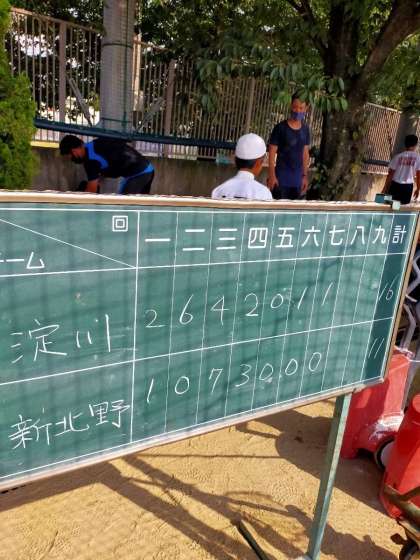 回 一 二 三 四 五 六 七 八 九 計
ーム
淀川 2 6 4 2 0 1 1 16
新北野 1 0 7 3 0 0 0 11